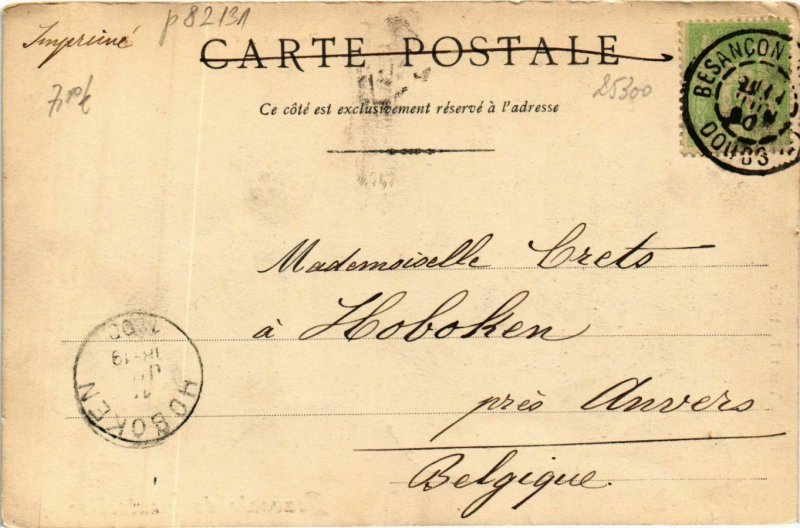 Imprimé
p82131
CARTE POSTALE
7,10f
25300
Ce côté est exclusivement réservé à l'adresse
BESANÇON
DOUBS
Mademoiselle Crets
à Hoboken
près Anvers
Belgique.
HOBOKEN
18-19